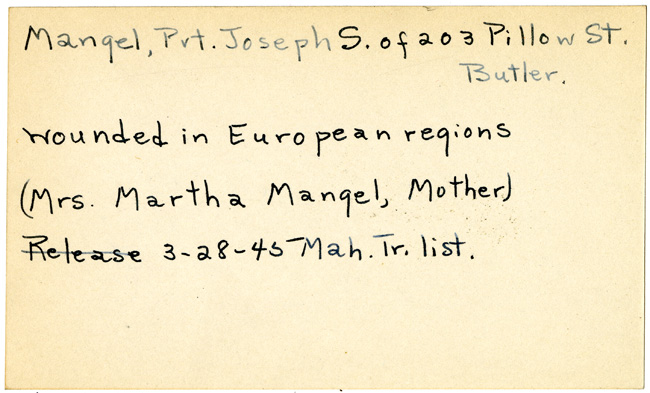 Mangel, Pvt. Joseph S. of 203 Pillow St.
Butler.
wounded in European regions
(Mrs. Martha Mangel, Mother)
Release 3-28-45 Mah. Tr. list.